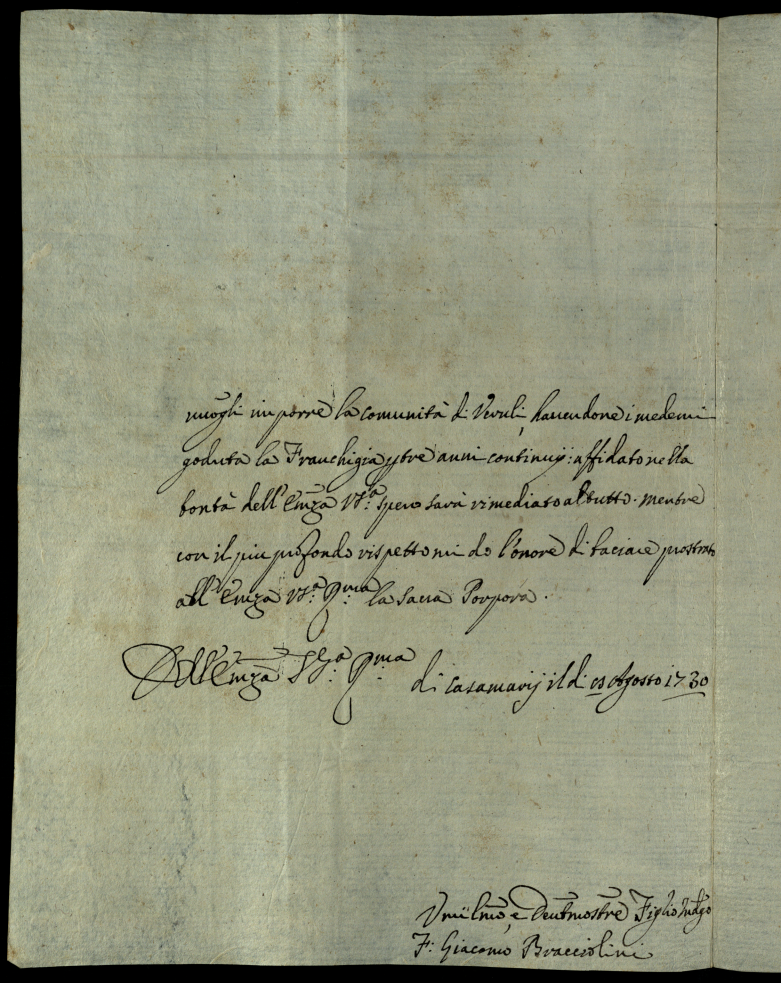 nuogli imporre la comunità di Veruli, hauendone i medemi
goduta la Franchigia p tre anni continuij: affidato nella
bontà dell' Emza Vra. spero sarà rimediato al tutto. mentre
con il piu profondo rispetto mi do l'onore di baciare prostrato
all' Emza Vra. Rma. la Sacra Porpora.
Dell' Emza Vra. Rma. di Casamarij il di Agosto 1730
Vmilmo, e Deutmo Figlio
F: Giacomo Bracciolini